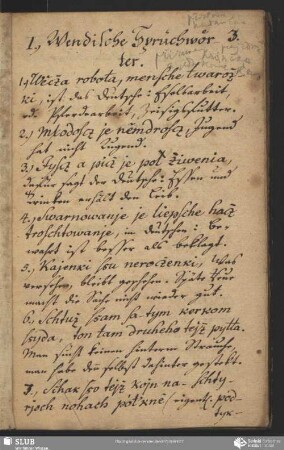 1., Wendische Sprüchwör- 3.
ter.
1., robota, mensche twaroz
ki, ist das Deutsche: Eselsarbeit,
Pferdearbeit, Zeisigsfutter.
2., Mlodosz je nemdrosz, Jugend
hat nicht Tugend.
3., Jysz a picz je pol ziwenia,
dafür sagt der Deutsche: Essen und
Trinken erhält den Leib.
4., Swarnowanje je liepsche hacz
troschtowanje, im Deutschen: be-
wahrt ist besser als beklagt.
5., Kajenki ssu neroczenki, was
versehen, bleibt geschehen. Späte Reue
macht die Sache nicht wieder gut.
6., Schtuz ssam sa tym kerkom
ssyda, ton tam druheho tejz pytta.
Man sucht keinen hinterm Strauch,
man habe denn selbst dahinter gesteckt.
7., Schak szo tejz kojn na schty-
rjoch nohach potkné, eigentl.